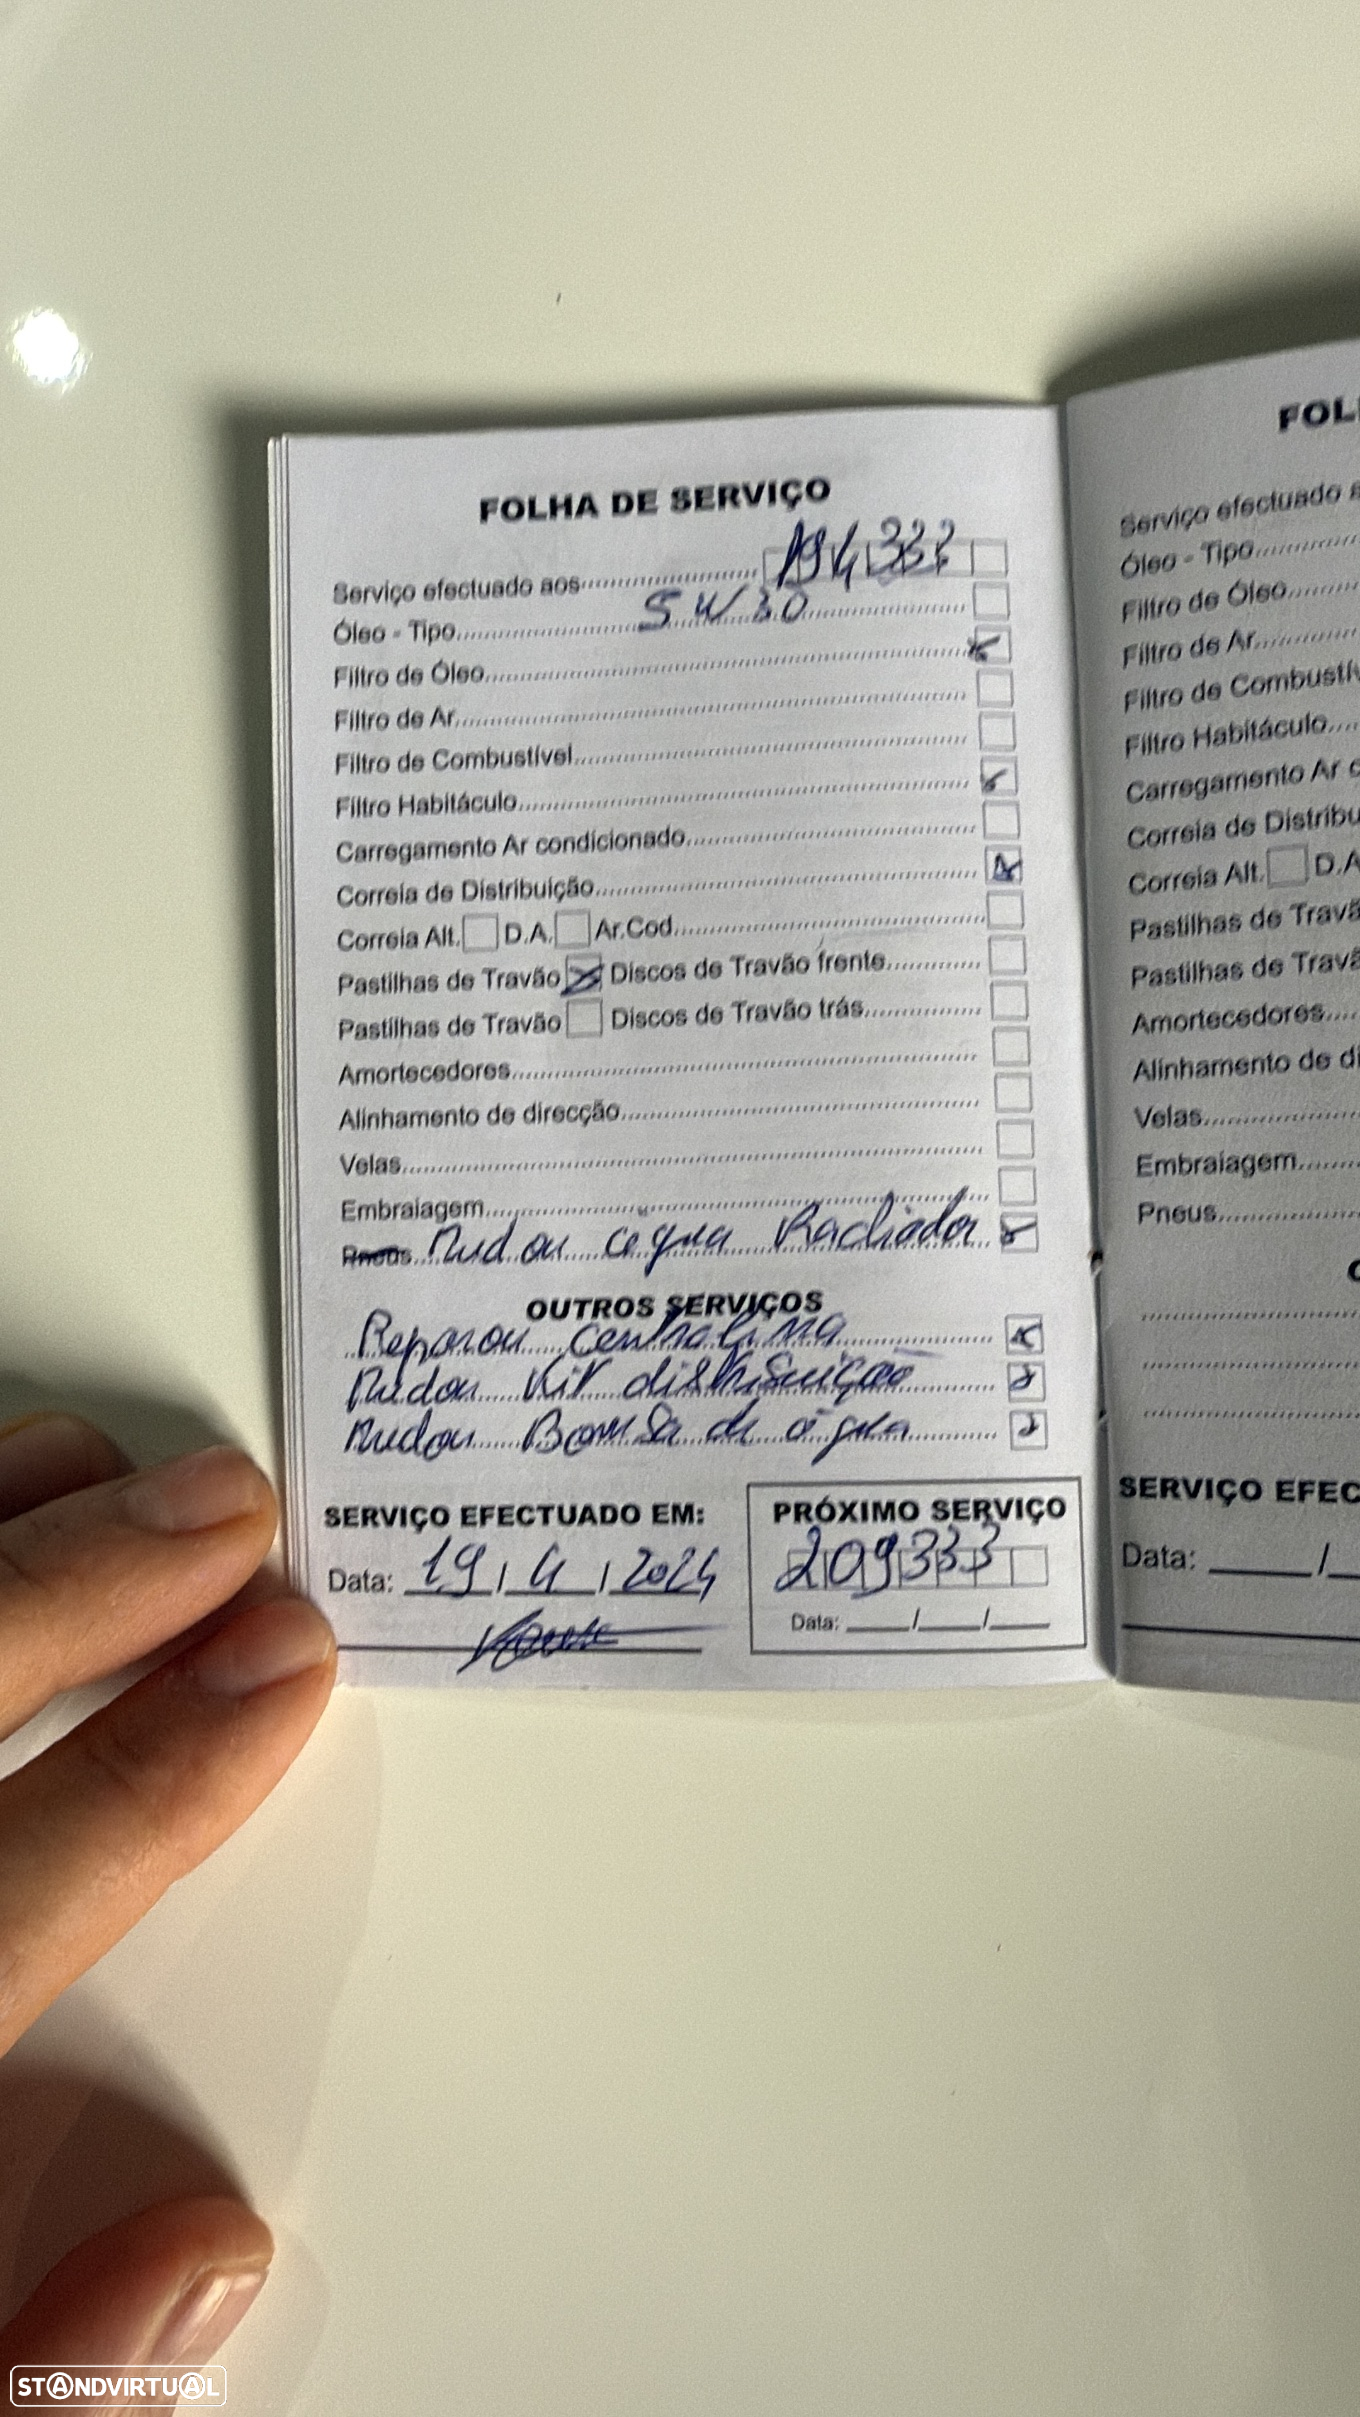 FOLHA DE SERVIÇO
Serviço efectuado aos 194333
Óleo - Tipo 5W30
Filtro de Óleo
Filtro de Ar
Filtro de Combustível
Filtro Habitáculo
Carregamento Ar condicionado
Correia de Distribuição
Correia Alt. D.A. Ar.Cod.
Pastilhas de Travão Discos de Travão frente
Pastilhas de Travão Discos de Travão trás
Amortecedores
Alinhamento de direcção
Velas
Embraiagem
Pneus Mudou agua Rachiador
OUTROS SERVIÇOS
Reparou centralina
Mudou Kit distribuição
Mudou Bomba de água
SERVIÇO EFECTUADO EM:
Data: 19 / 4 / 2024
PRÓXIMO SERVIÇO
209333
Data: / /
FOL
Serviço efectuado a
Óleo - Tipo
Filtro de Óleo
Filtro de Ar
Filtro de Combustív
Filtro Habitáculo
Carregamento Ar c
Correia de Distribu
Correia Alt. D.A
Pastilhas de Travã
Pastilhas de Travã
Amortecedores
Alinhamento de di
Velas
Embraiagem
Pneus
SERVIÇO EFEC
Data: /
STANDVIRTUAL